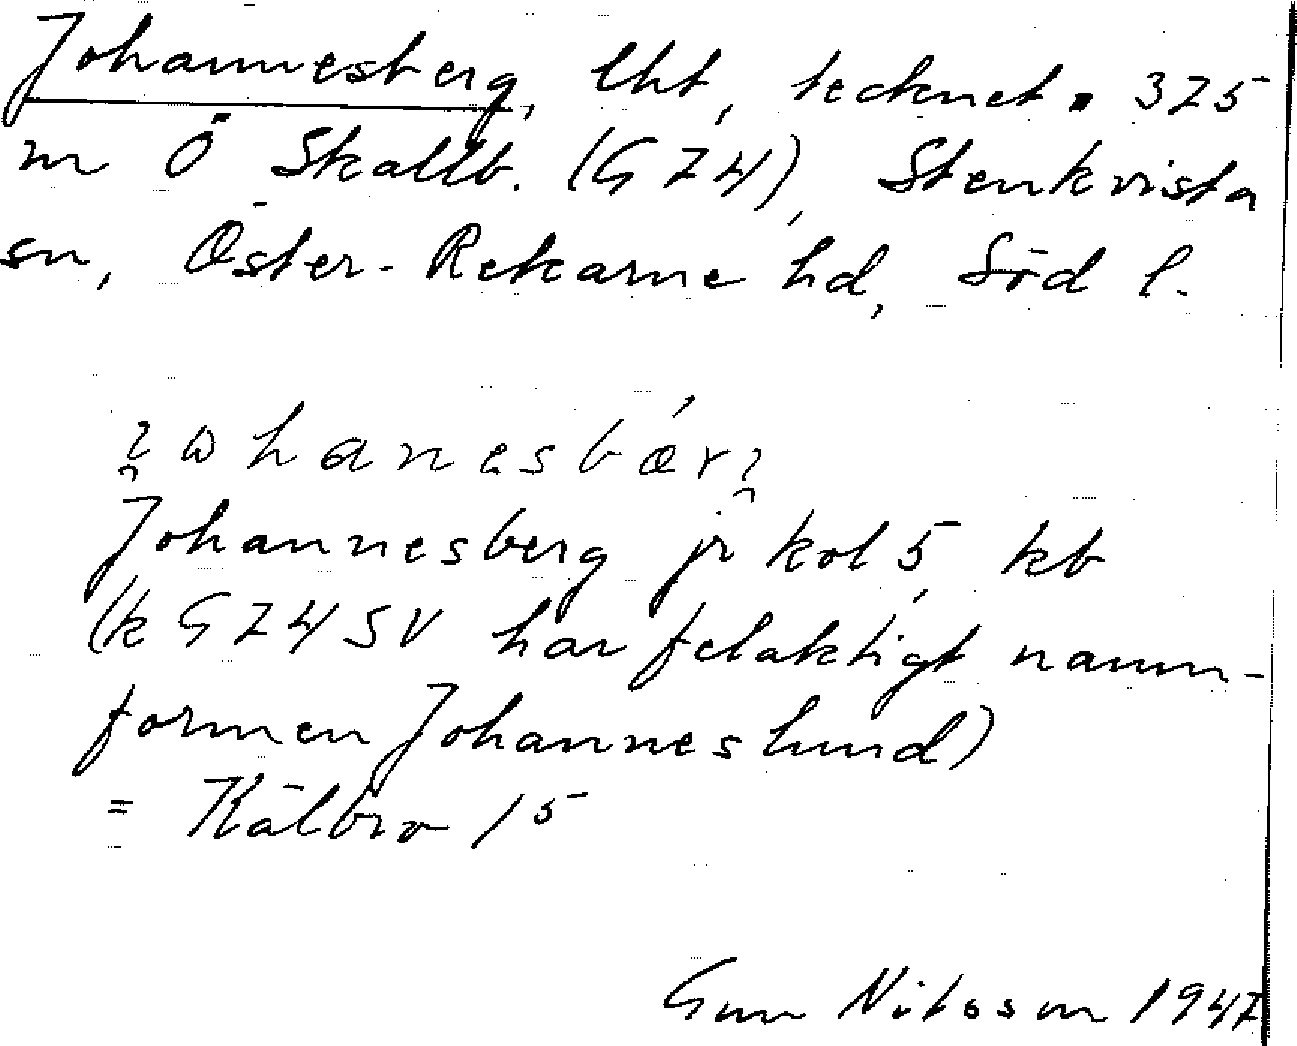 Johannesberg, lht, tecknet ▪ 375
m Ö Skallb. (G 74), Stenkvista
sn, Öster-Rekarne hd, Söd l.
Johannesberg jr kol 5, kb
(k G74SV har felaktigt namn-
formen Johanneslund)
= Kälbro 1⁵
Gun Nilsson 1947